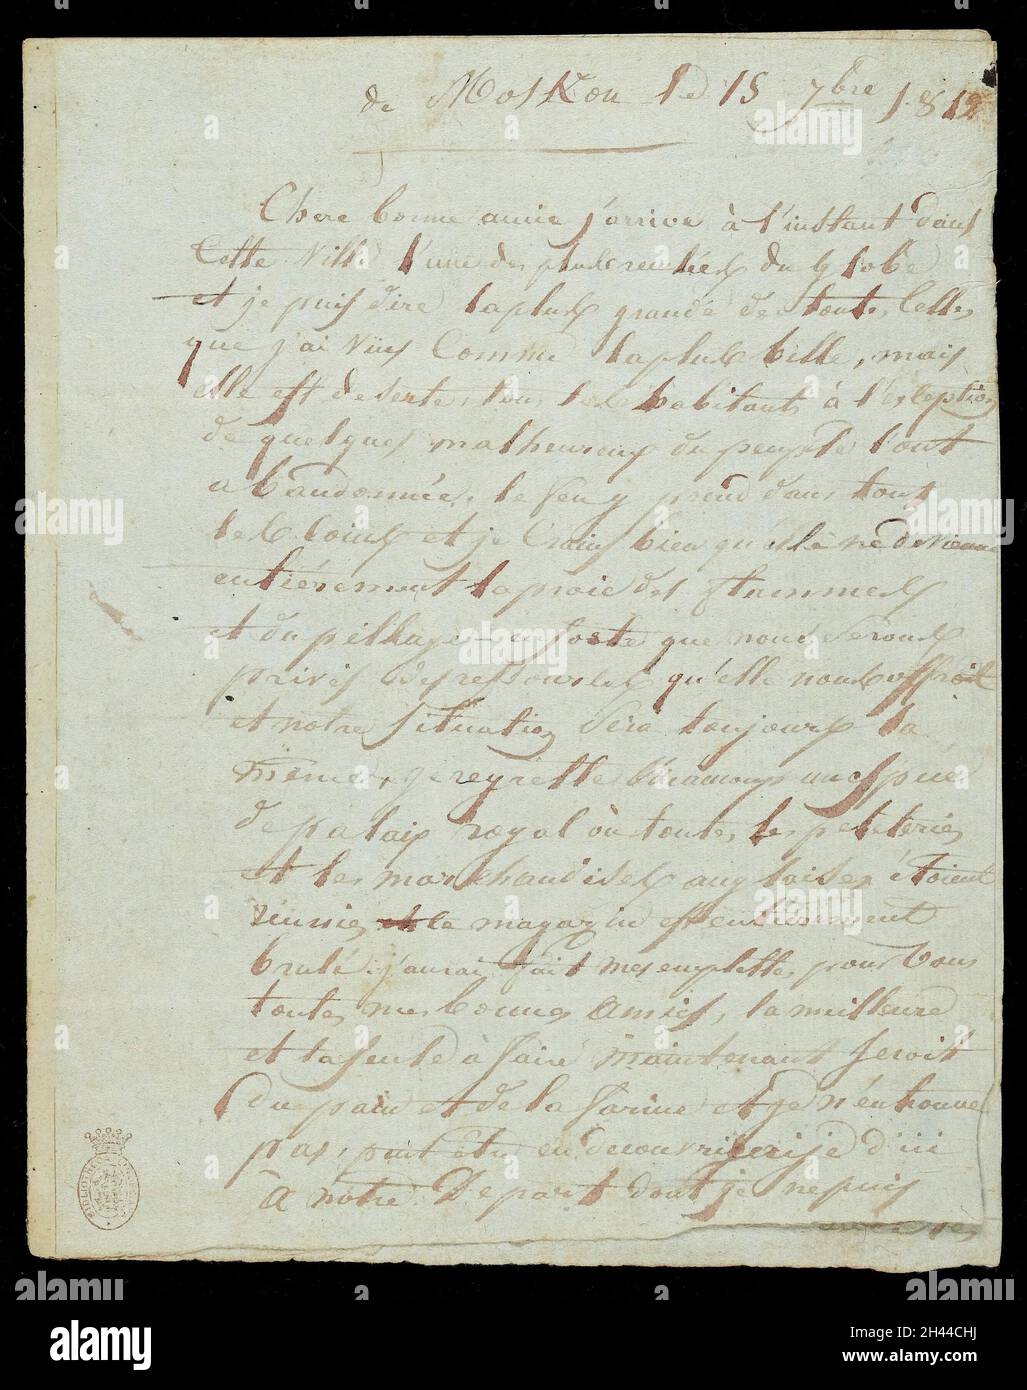 de Moskou le 15 7bre 1812
Chere bonne amie j'arrive à l'instant dans
Cette Ville l'une des plus du globe
et je puis dire la plus grande de toutes Celles
que j'ai Vües Comme la plus belle, mais
elle est deserte, tous les habitants à l'exception
de quelques malheureux du peuple l'ont
abandonnée. le feu y prend dans tous
les Coins et je Crains bien qu'elle ne devienne
entièrement la proie des flammes
et du pillage en sorte que nous serons
privés des ressources qu'elle nous offroit
et notre situation sera toujours la
même, je regrette beaucoup une espece
de palais royal où toutes les peleteries
et les marchandises anglaises étoient
réunies et le magazin est entièrement
brulé. j'aurai fait mes emplettes pour Vous
toutes mes bonnes Amies, la meilleure
et la seule à faire maintenant seroit
du pain et de la farine et je n'en trouve
pas, peut être en decouvrirai je d'ici
à notre Départ dont je ne puis
BIBLIOTHECA
alamy
a
alamy
Image ID: 2H44CHJ
www.alamy.com